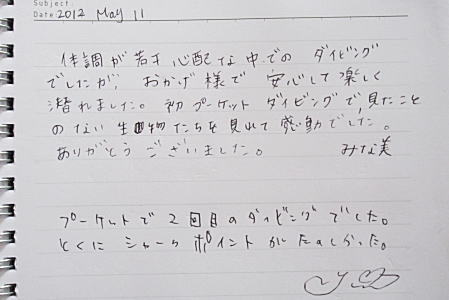 Subject:
Date: 2012 May 11
体調が若干心配な中でのダイビング
でしたが、おかげ様で安心して楽しく
潜れました。初プーケットダイビングで、見たこと
のない生物たちを見れて感動でした。
ありがとうございました。 みな美
プーケットで2回目のダイビングでした。
とくにシャークポイントがたのしかった。